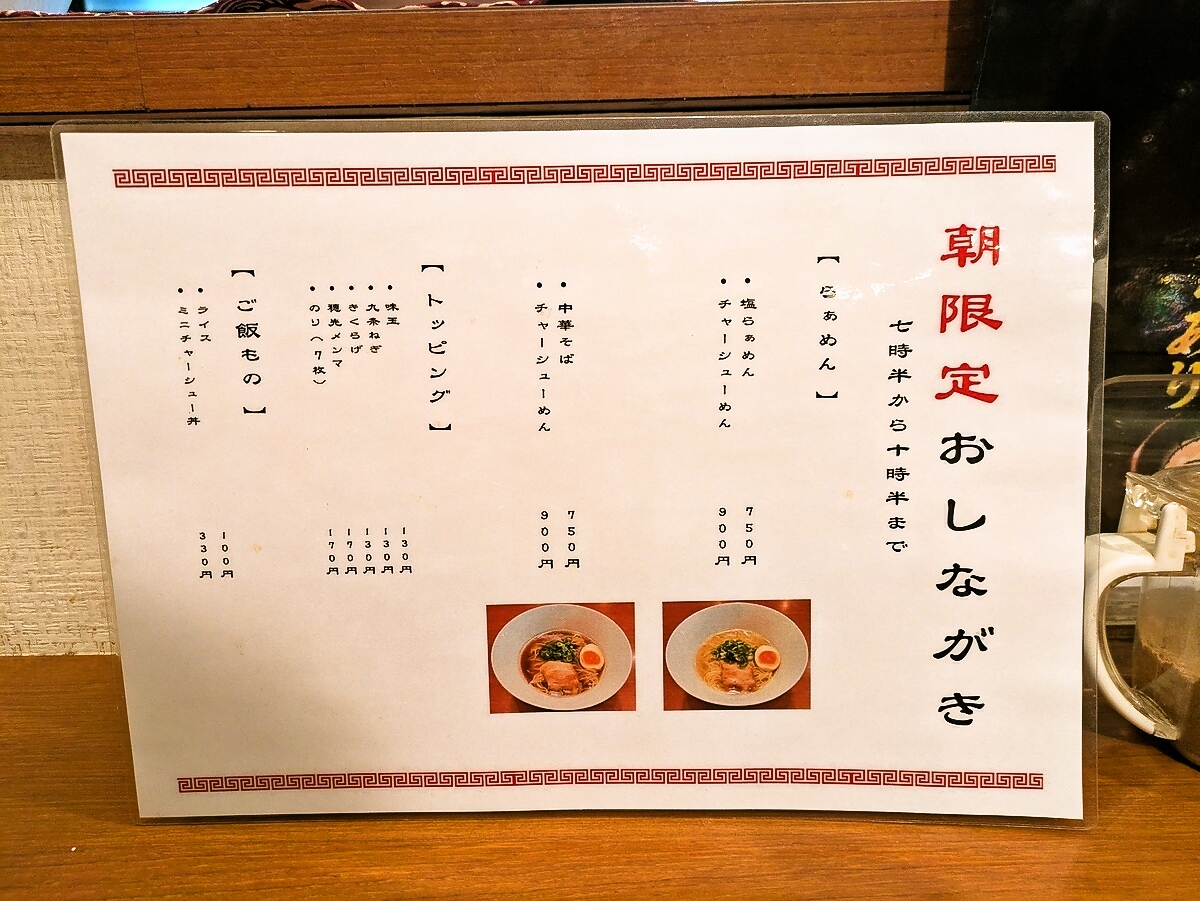 朝限定おしながき
七時半から十時半まで
【らぁめん】
・塩らぁめん 750円
・チャーシューめん 900円
・中華そば 750円
・チャーシューめん 900円
【トッピング】
・味玉 130円
・九条ねぎ 130円
・きくらげ 130円
・穂先メンマ 170円
・のり(7枚) 170円
【ご飯もの】
・ライス 100円
・ミニチャーシュー丼 330円
あり